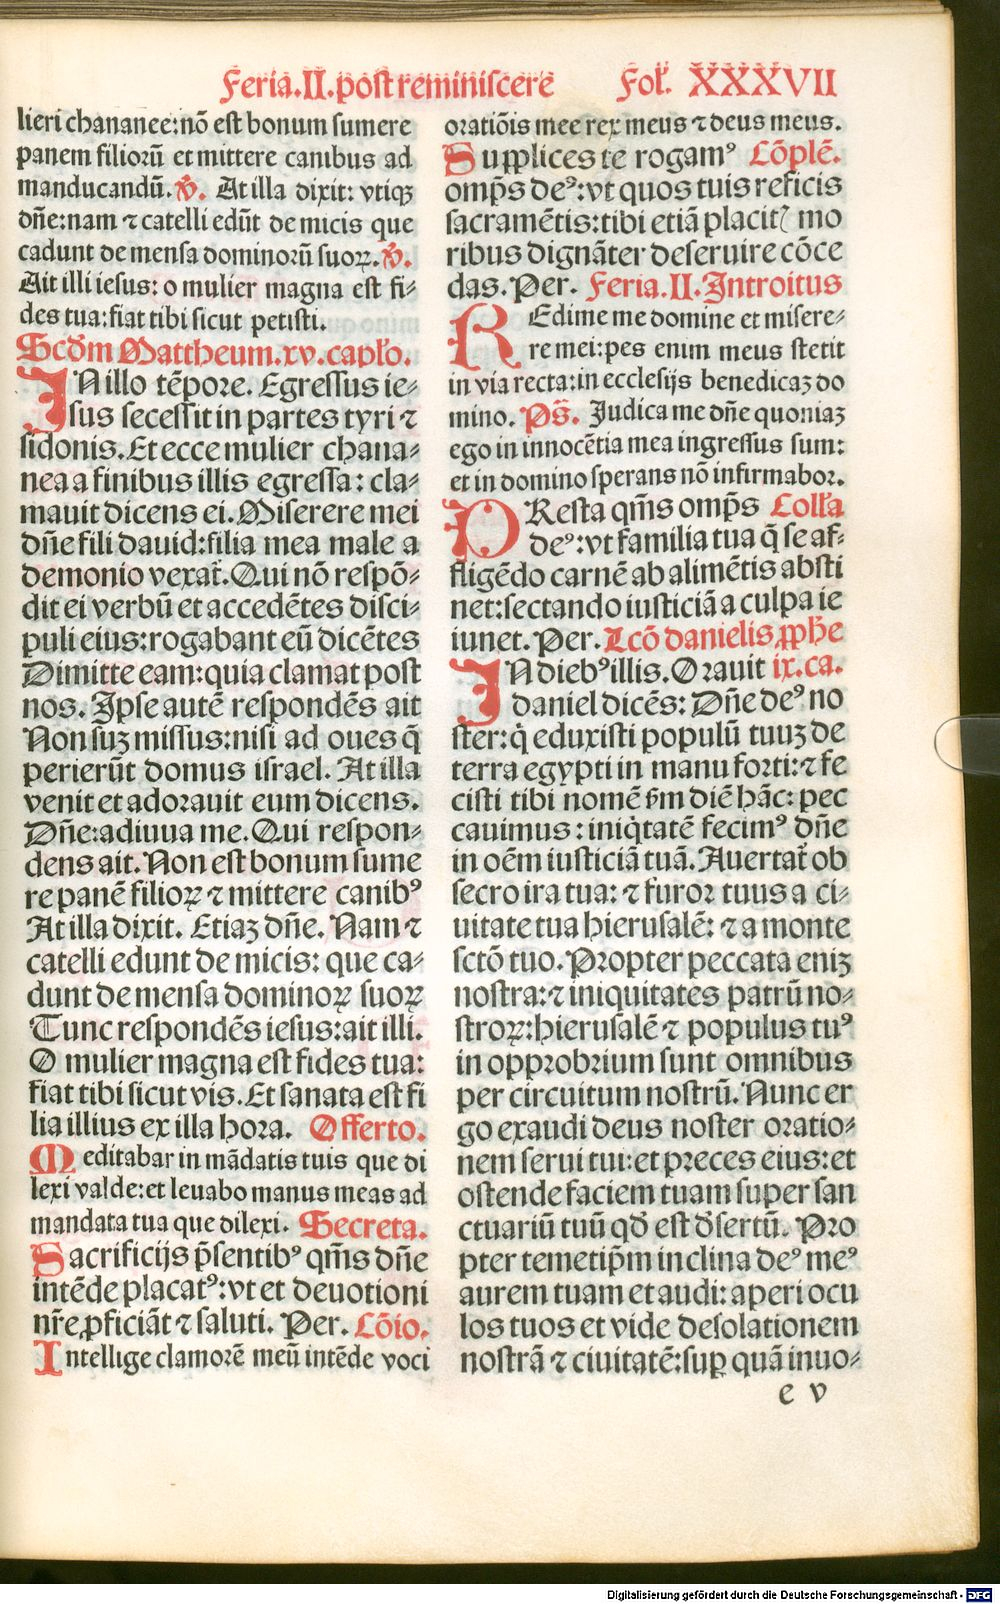 Feria.II.post reminiscere Fol. XXXVII
lieri chananee:nō est bonum sumere
panem filiorū et mittere canibus ad
manducandū. ℣. At illa dixit: vtiqꝫ
dn̄e:nam ⁊ catelli edūt de micis que
cadunt de mensa dominorū suoꝝ. ℣.
Ait illi iesus: o mulier magna est fi-
des tua:fiat tibi sicut petisti.
Scd̄m Mattheum.xv.capło.
IN illo tēpore. Egressus ie-
sus secessit in partes tyri ⁊
sidonis. Et ecce mulier chana-
nea a finibus illis egressa: cla-
mauit dicens ei. Miserere mei
dn̄e fili dauid:filia mea male a
demonio vexat̄. Qui nō respō-
dit ei verbū et accedētes disci-
puli eius:rogabant eū dicētes
Dimitte eam:quia clamat post
nos. Ipse autē respondēs ait
Non suꝫ missus:nisi ad oues q̄
perierūt domus israel. At illa
venit et adorauit eum dicens.
Dn̄e:adiuua me. Qui respon-
dens ait. Non est bonum sume
re panē filioꝝ ⁊ mittere canibꝰ
At illa dixit. Etiaꝫ dn̄e. Nam ⁊
catelli edunt de micis: que ca-
dunt de mensa dominoꝝ suoꝝ
Tunc respondēs iesus:ait illi.
O mulier magna est fides tua:
fiat tibi sicut vis. Et sanata est fi
lia illius ex illa hora. Offerto.
Meditabar in mādatis tuis que di
lexi valde:et leuabo manus meas ad
mandata tua que dilexi. Secreta.
Sacrificijs p̄sentibꝰ qm̄s dn̄e
intēde placatꝰ:vt et deuotioni
nr̄e ꝓficiāt ⁊ saluti. Per. Cōio.
Intellige clamorē meū intēde voci
oratiōis mee rex meus ⁊ deus meus.
Supplices te rogamꝰ Cōplē.
omp̄s deꝰ:vt quos tuis reficis
sacramētis:tibi etiā placitꝭ mo
ribus dignāter deseruire cōce
das. Per. Feria.II.Introitus
REdime me domine et misere-
re mei:pes enim meus stetit
in via recta:in ecclesijs benedicaꝫ do
mino. Ps̄. Judica me dn̄e quoniaꝫ
ego in innocētia mea ingressus sum:
et in domino sperans nō infirmabor.
PResta qm̄s omp̄s Coll'a
deꝰ:vt familia tua q̄ se af-
fligēdo carnē ab alimētis absti
net:sectando iusticiā a culpa ie
iunet. Per. Lcō danielis ꝓphe
IN diebꝰ illis. Orauit ix.ca.
daniel dicēs: Dn̄e deꝰ no
ster:q̇ eduxisti populū tuuꝫ de
terra egypti in manu forti:⁊ fe
cisti tibi nomē ẜm diē hāc: pec
cauimus: iniq̇tatē fecimꝰ dn̄e
in oēm iusticiā tuā. Auertat̄ ob
secro ira tua: ⁊ furor tuus a ci-
uitate tua hierusalē: ⁊ a monte
sctō tuo. Propter peccata eniꝫ
nostra:⁊ iniquitates patrū no-
stroꝝ:hierusalē ⁊ populus tuꝰ
in opprobrium sunt omnibus
per circuitum nostrū. Nunc er
go exaudi deus noster oratio-
nem serui tui:et preces eius:et
ostende faciem tuam super san
ctuariū tuū qd̄ est d̄sertū. Pro
pter temetip̄m inclina deꝰ meꝰ
aurem tuam et audi:aperi ocu
los tuos et vide desolationem
nostrā ⁊ ciuitatē:suꝑ quā inuo-
e v
Digitalisierung gefördert durch die Deutsche Forschungsgemeinschaft - DFG